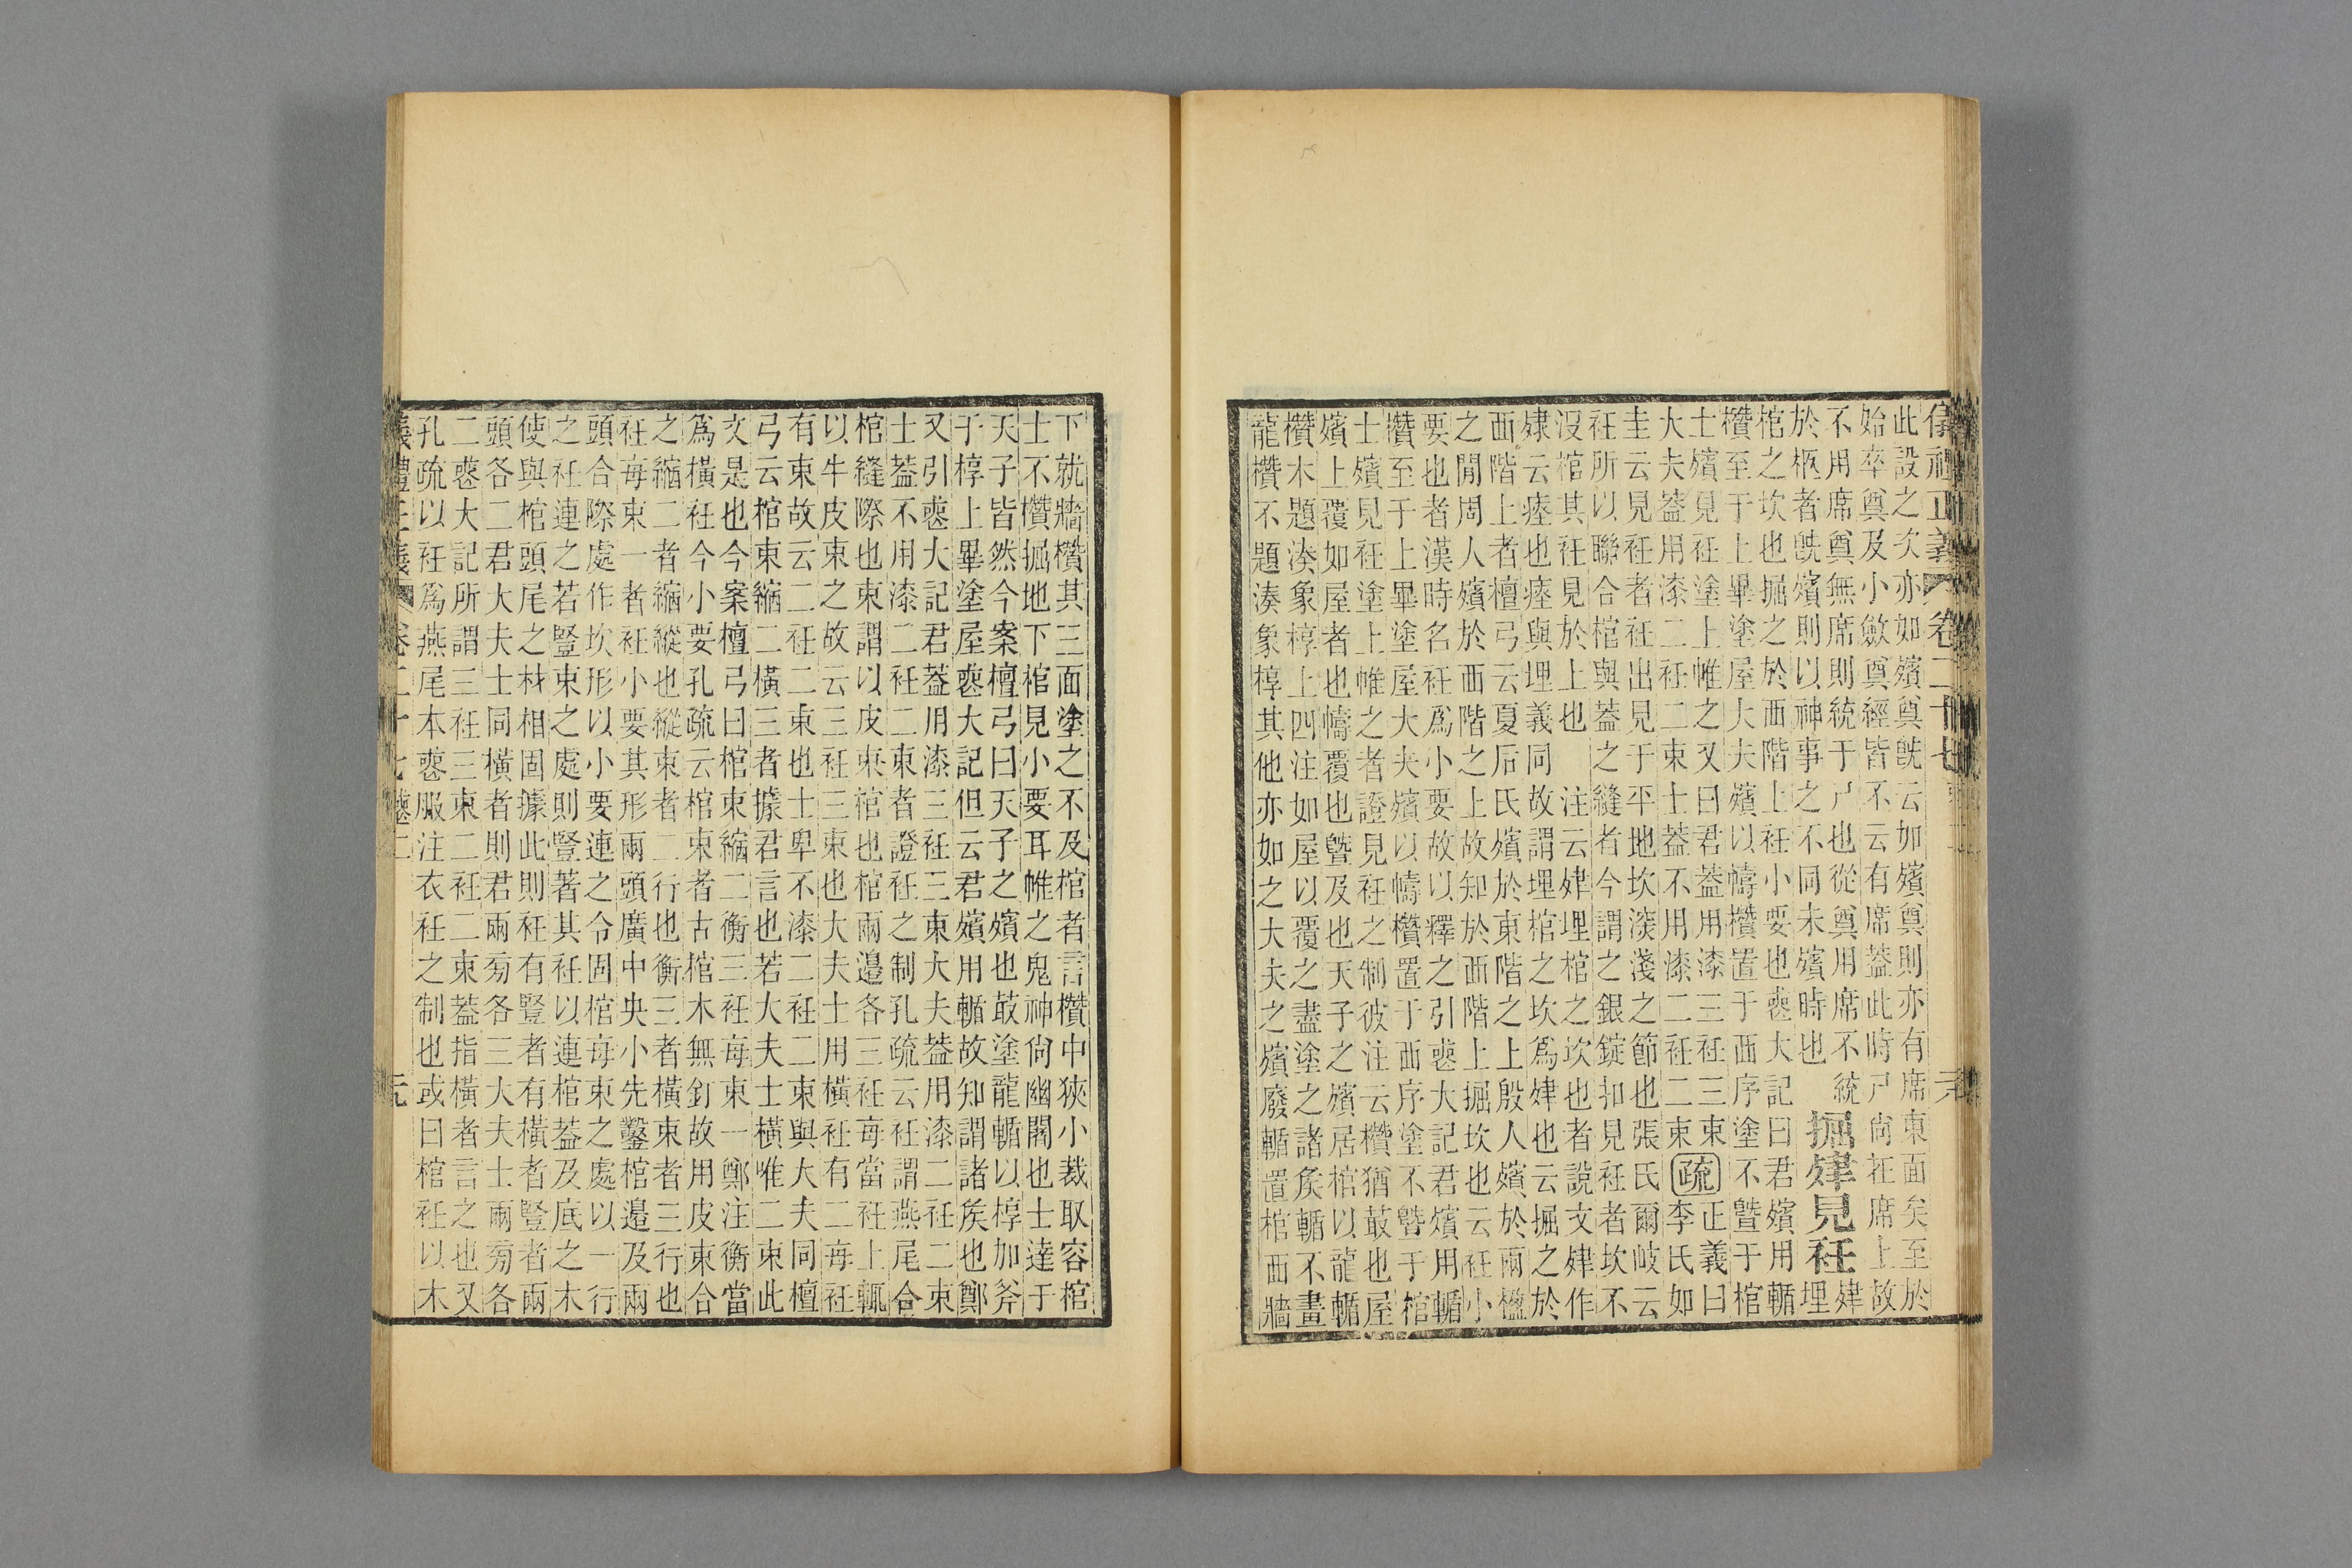 儀禮正義 卷二十七
此設之次亦如殯奠旣云如殯奠則亦有席東面矣至於
始卒奠及小斂奠經皆不云有席蓋此時尸尙在席上故
不用席奠無席則統于尸也從奠用席不統
於柩者旣殯則以神事之不同未殯時也
掘肂見衽
肂埋
棺之坎也掘之於西階上衽小要也喪大記曰君殯用輴
欑至于上畢塗屋大夫殯以幬欑置于西序塗不曁于棺
士殯見衽塗上帷之又曰君蓋用漆三衽三束
大夫蓋用漆二衽二束士蓋不用漆二衽二束
疏
正義曰
李氏如
圭云見衽者衽出見于平地坎深淺之節也張氏爾岐云
衽所以聯合棺與蓋之縫者今謂之銀錠扣見衽者坎不
沒棺其衽見於上也 注云肂埋棺之坎也者說文肂作
肂云瘞也瘞與埋義同故謂埋棺之坎爲肂也云掘之於
西階上者檀弓云夏后氏殯於東階之上殷人殯於兩楹
之閒周人殯於西階之上故知於西階上掘坎也云衽小
要也者漢時名衽爲小要故以釋之引喪大記君殯用輴
欑至于上畢塗屋大夫殯以幬欑置于西序塗不曁于棺
士殯見衽塗上帷之者證見衽之制彼注云欑猶菆也屋
殯上覆如屋者也幬覆也曁及也天子之殯居棺以龍輴
欑木題湊象椁上四注如屋以覆之盡塗之諸矦輴不畫
龍欑不題湊象椁其他亦如之大夫之殯廢輴置棺西牆
下就牆欑其三面塗之不及棺者言欑中狹小裁取容棺
士不欑掘地下棺見小要耳帷之鬼神尙幽闇也士達于
天子皆然今案檀弓曰天子之殯也菆塗龍輴以椁加斧
于椁上畢塗屋喪大記但云君殯用輴故知謂諸矦也鄭
又引喪大記君蓋用漆三衽三束大夫蓋用漆二衽二束
士蓋不用漆二衽二束者證衽之制孔疏云衽謂燕尾合
棺縫際也束謂以皮束棺也棺兩邊各三衽每當衽上輒
以牛皮束之故云三衽三束也大夫士用橫衽有二每衽
有束故云二衽二束也士卑不漆二衽二束與大夫同檀
弓云棺束縮二橫三者據君言也若大夫士橫唯二束此
文是也今案檀弓曰棺束縮二衡三衽每束一鄭注衡當
爲橫衽今小要孔疏云棺束者古棺木無釘故用皮束合
之縮二者縮縱也縱束者二行也衡三者橫束者三行也
衽每束一者衽小要其形兩頭廣中央小先鑿棺邊及兩
頭合際處作坎形以小要連之令固棺每束之處以一行
之衽連之若豎束之處則豎著其衽以連棺蓋及底之木
使與棺頭尾之材相固據此則衽有豎者有橫者豎者兩
頭各二君大夫士同橫者則君兩旁各三大夫士兩旁各
二喪大記所謂三衽三束二衽二束蓋指橫者言之也又
孔疏以衽爲燕尾本喪服注衣衽之制也或曰棺衽以木